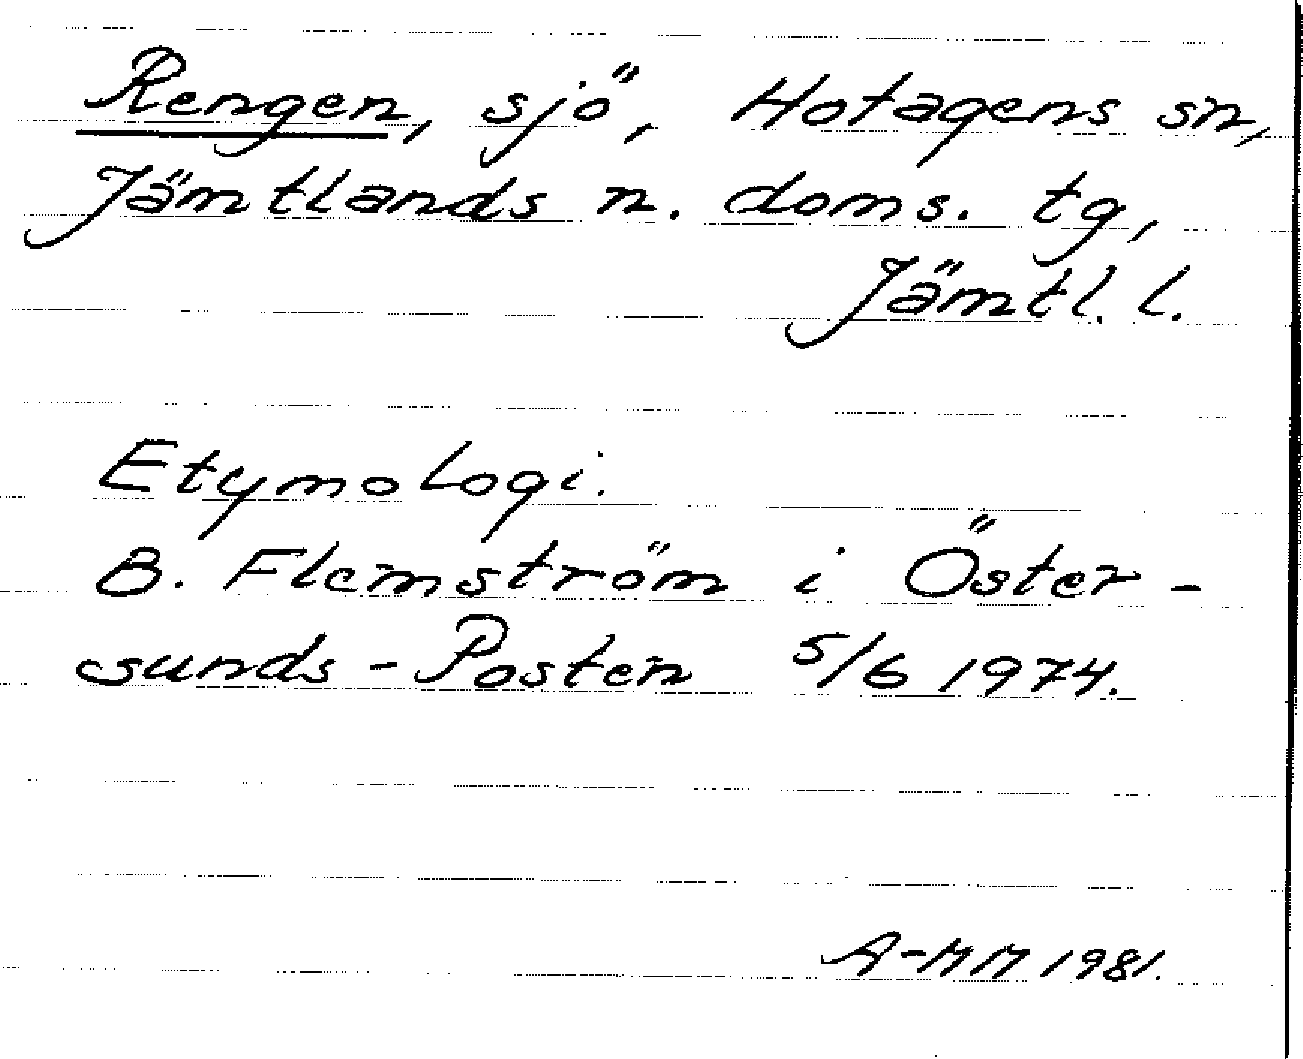 Rengen, sjö, Hotagens sn,
Jämtlands n. doms. tg,
Jämtl. l.
Etymologi.
B. Flemström i Öster-
sunds-Posten 5/6 1974.
A-MM 1981.